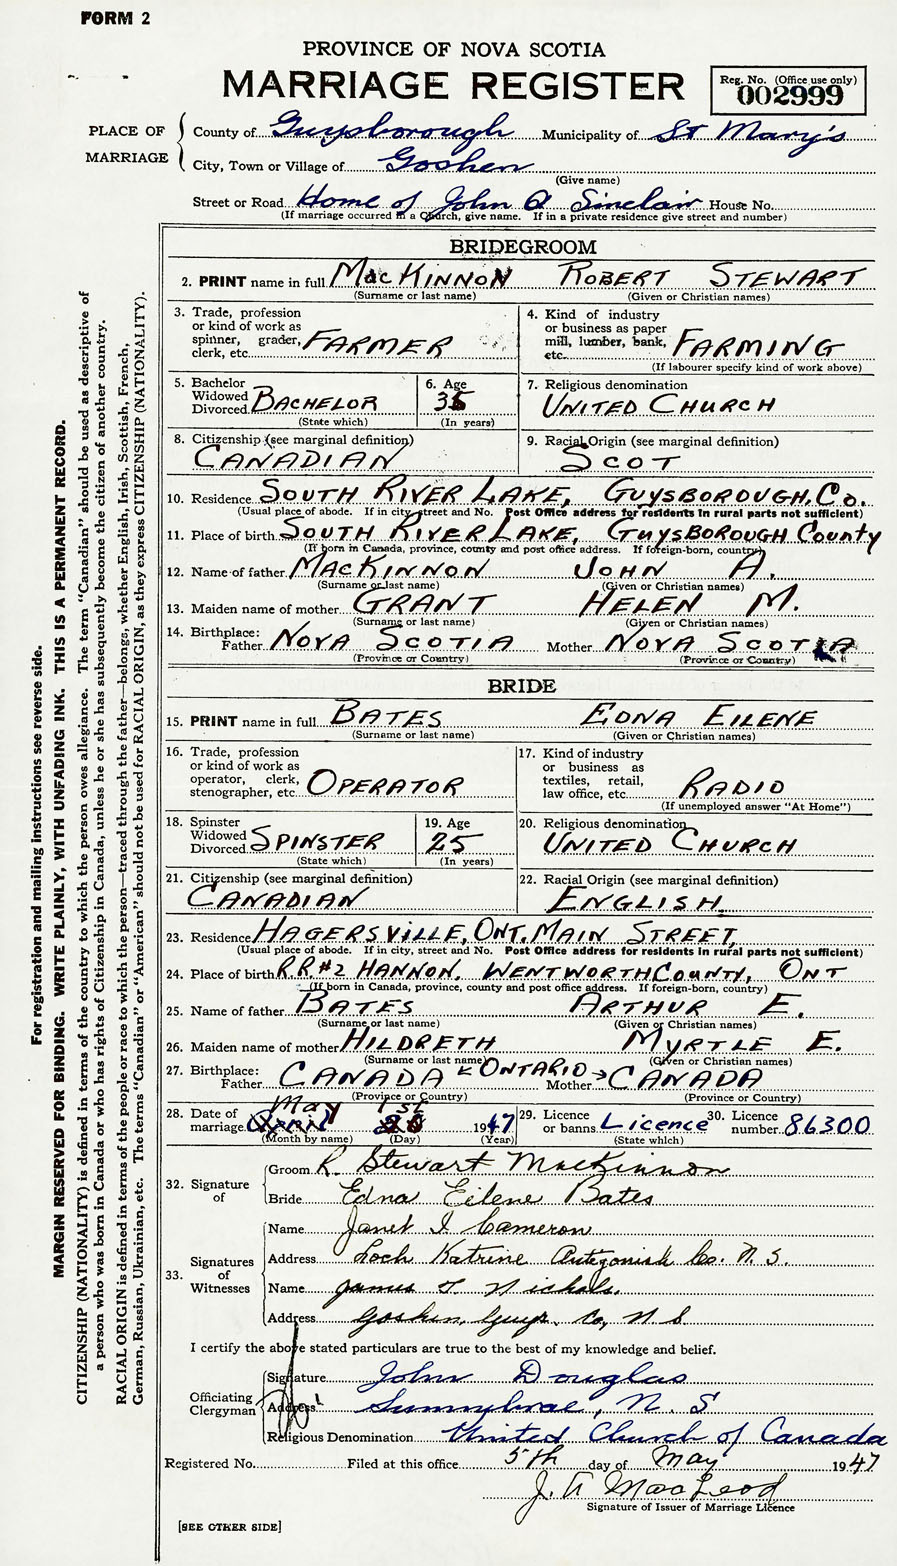 FORM 2
PROVINCE OF NOVA SCOTIA
MARRIAGE REGISTER
Reg. No. (Office use only)
002999
PLACE OF MARRIAGE
County of Guysborough Municipality of St Mary's
City, Town or Village of Goshen
(Give name)
Street or Road Home of John A Sinclair House No.
(If marriage occurred in a Church, give name. If in a private residence give street and number)
BRIDEGROOM
2. PRINT name in full MacKINNON ROBERT STEWART
(Surname or last name) (Given or Christian names)
3. Trade, profession or kind of work as spinner, grader, clerk, etc. FARMER
4. Kind of industry or business as paper mill, lumber, bank, etc. FARMING
(If labourer specify kind of work above)
5. Bachelor Widowed Divorced BACHELOR
(State which)
6. Age 35
(In years)
7. Religious denomination
UNITED CHURCH
8. Citizenship (see marginal definition)
CANADIAN
9. Racial Origin (see marginal definition)
SCOT
10. Residence SOUTH RIVER LAKE, GUYSBOROUGH, Co.
(Usual place of abode. If in city, street and No. Post Office address for residents in rural parts not sufficient)
11. Place of birth SOUTH RIVER LAKE, GUYSBOROUGH County
(If born in Canada, province, county and post office address. If foreign-born, country)
12. Name of father MACKINNON JOHN A.
(Surname or last name) (Given or Christian names)
13. Maiden name of mother GRANT HELEN M.
(Surname or last name) (Given or Christian names)
14. Birthplace: Father NOVA SCOTIA Mother NOVA SCOTIA
(Province or Country) (Province or Country)
BRIDE
15. PRINT name in full BATES EDNA EILENE
(Surname or last name) (Given or Christian names)
16. Trade, profession or kind of work as operator, clerk, stenographer, etc OPERATOR
17. Kind of industry or business as textiles, retail, law office, etc. RADIO
(If unemployed answer "At Home")
18. Spinster Widowed Divorced SPINSTER
(State which)
19. Age 25
(In years)
20. Religious denomination
UNITED CHURCH
21. Citizenship (see marginal definition)
CANADIAN
22. Racial Origin (see marginal definition)
ENGLISH
23. Residence HAGERSVILLE, ONT. MAIN STREET,
(Usual place of abode. If in city, street and No. Post Office address for residents in rural parts not sufficient)
24. Place of birth R.R.#2 HANNON, WENTWORTH COUNTY, ONT
(If born in Canada, province, county and post office address. If foreign-born, country)
25. Name of father BATES ARTHUR E.
(Surname or last name) (Given or Christian names)
26. Maiden name of mother HILDRETH MYRTLE E.
(Surname or last name) (Given or Christian names)
27. Birthplace: Father CANADA ← ONTARIO → Mother CANADA
(Province or Country) (Province or Country)
May 1st
28. Date of marriage April 28 1947
(Month by name) (Day) (Year)
29. Licence or banns Licence
(State which)
30. Licence number 86300
32. Signature of
Groom R. Stewart MacKinnon
Bride Edna Eilene Bates
33. Signatures of Witnesses
Name Janet I Cameron
Address Loch Katrine Antigonish Co. N.S.
Name James T Nichols.
Address Goshen Guys. Co, N S
I certify the above stated particulars are true to the best of my knowledge and belief.
Officiating Clergyman
Signature John Douglas
Address Sunnybrae, N. S
Religious Denomination United Church of Canada
Registered No. Filed at this office 5th day of May 1947
J. A MacLeod
Signature of Issuer of Marriage Licence
[SEE OTHER SIDE]
For registration and mailing instructions see reverse side.
MARGIN RESERVED FOR BINDING. WRITE PLAINLY, WITH UNFADING INK. THIS IS A PERMANENT RECORD.
CITIZENSHIP (NATIONALITY) is defined in terms of the country to which the person owes allegiance. The term "Canadian" should be used as descriptive of
a person who was born in Canada or who has rights of Citizenship in Canada, unless he or she has subsequently become the citizen of another country.
RACIAL ORIGIN is defined in terms of the people or race to which the person—traced through the father—belongs, whether English, Irish, Scottish, French,
German, Russian, Ukrainian, etc. The terms "Canadian" or "American" should not be used for RACIAL ORIGIN, as they express CITIZENSHIP (NATIONALITY).